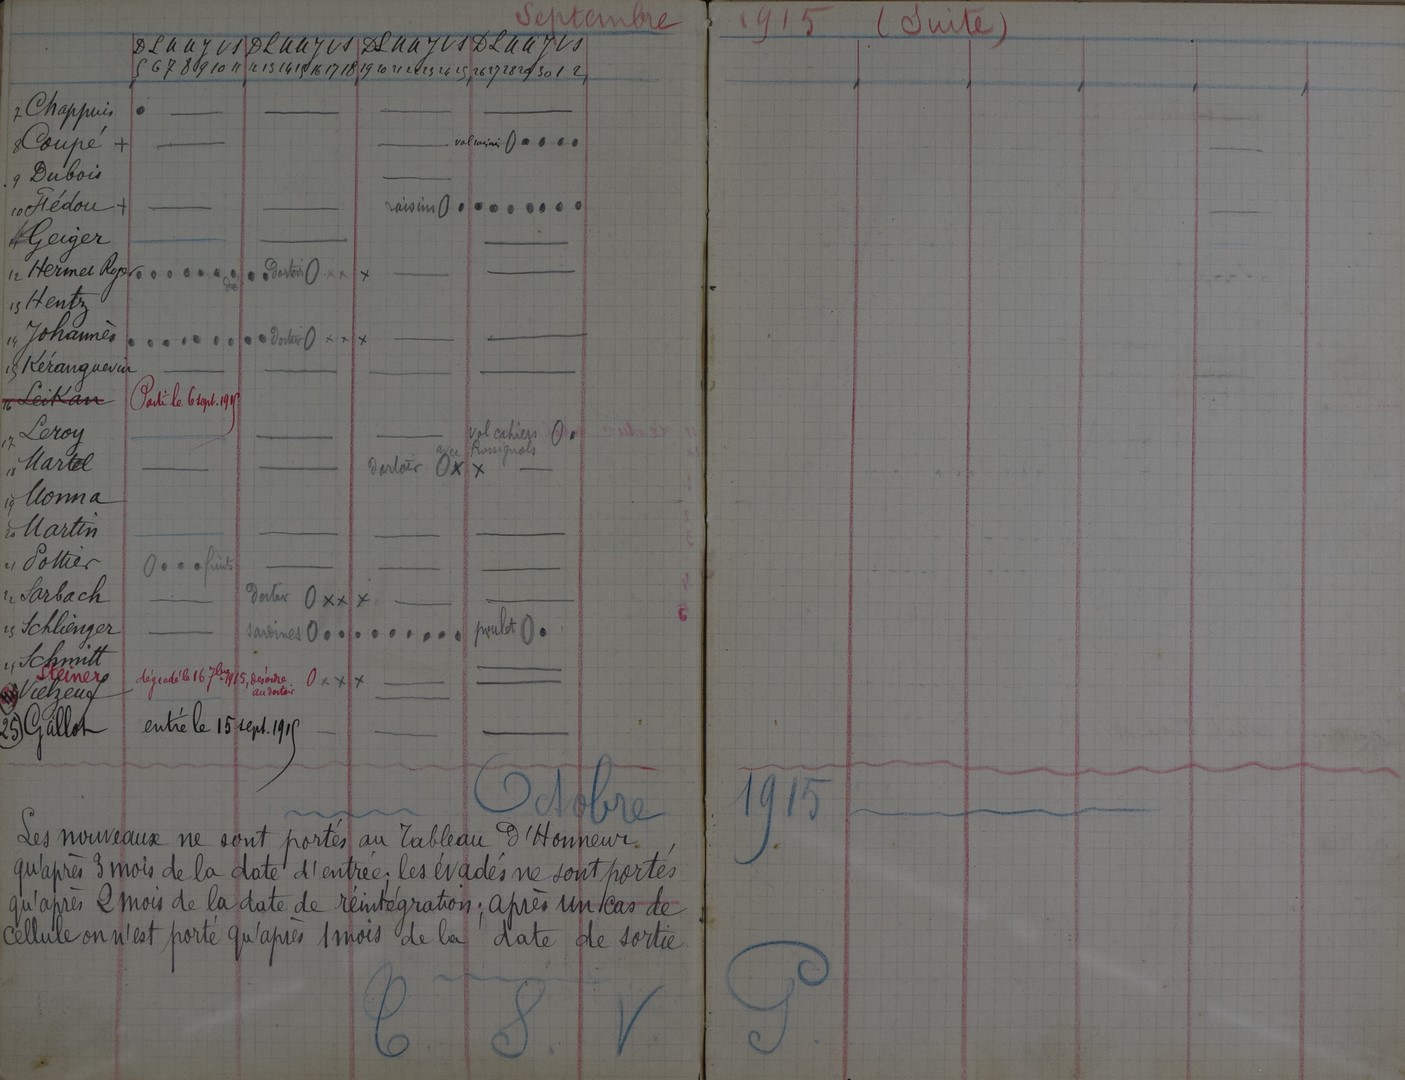 Septembre 1915 (Suite)
D L M M J V S D L M M J V S D L M M J V S D L M M J V S
5 6 7 8 9 10 11 12 13 14 15 16 17 18 19 20 21 22 23 24 25 26 27 28 29 30 1 2
7 Chappuis
8 Coupé + vol raisins 0
9 Dubois
10 Fédou + raisins 0
Geiger
12 Hermel Roger dortoir 0 x x x
13 Hentz
14 Johannès dortoir 0 x x x
15 Kéranguevin
16 Leikan Parti le 6 sept. 1915
17 Leroy vol cahiers 0
18 Martel dortoir 0 x x
Rossignols
19 Monna
20 Martin
21 Pottier 0 fruits
22 Sarbach dortoir 0 x x x
23 Schlienger sardines 0 poulet 0
24 Schmitt
Steiner dégradé le 16 7bre 1915, désordre 0 x x x
au dortoir
Vielzeuf
25) Gallot entré le 15 sept. 1915
Octobre 1915
Les nouveaux ne sont portés au Tableau D'Honneur
qu'après 3 mois de la date d'entrée; les évadés ne sont portés
qu'après 2 mois de la date de réintégration; après un cas de
cellule on n'est porté qu'après 1 mois de la date de sortie
C. S. V G.